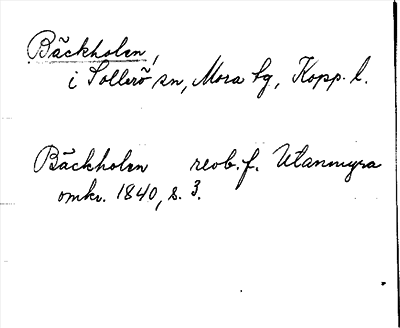 Bäckholen,
i Sollerö sn, Mora tg, Kopp. l.
Bäckholen reob. f. Utanmyra
omkr. 1840, s. 3.